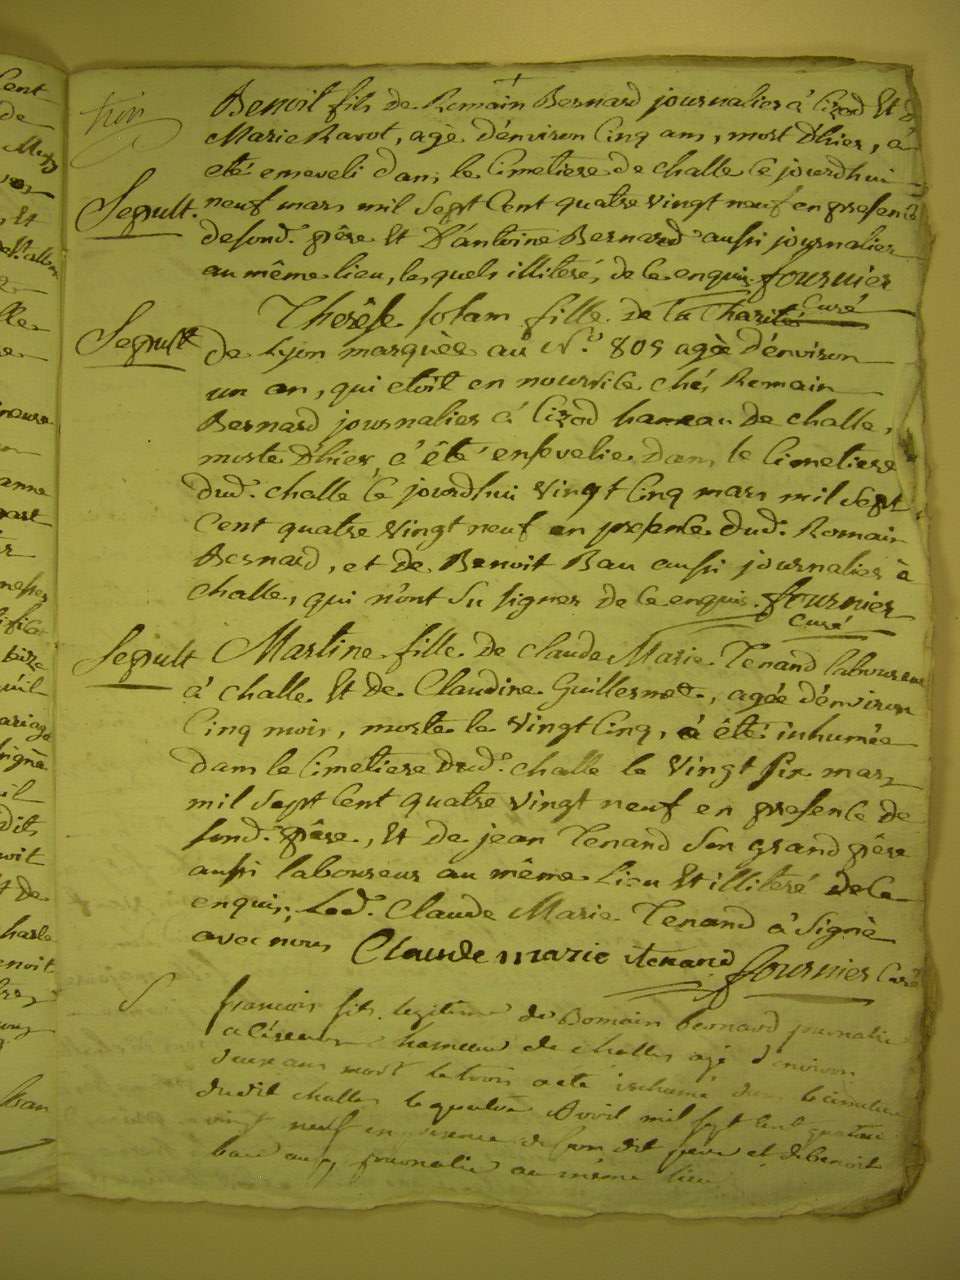 Benoit fils de Romain Bernard journalier à Cizod Et de
Marie Ravot, agé d'environ Cinq ans, mort D'hier, a
eté enseveli dans le Cimetiere de challe Ce jourd'hui
Sepult. neuf mars mil Sept Cent quatre vingt neuf en presence
desond. pêre Et D'antoine Bernard aussi journalier
au même lieu, lesquels illiteré, de ce enquis. fournier
Curé
Sepult Therêse Jolam fille de la Charité
de Lyon marquèe au N.º 805 agèe d'environ
un an, qui etoit en nourrice chés Romain
Bernard journalier à Cizod hameau de challe,
morte D'hier à été ensevelie dans le Cimetiere
dud. challe Ce jourd'hui vingt Cinq mars mil Sept
Cent quatre vingt neuf en presence dud. Romain
Bernard, et de Benoit Bau aussi journalier à
challe, qui n'ont Su signer de ce enquis. fournier
Curé
Sepult Martine fille de claude Marie Tenand laboureur
à challe Et de Claudine Guillermet, agée d'environ
Cinq mois, morte le vingt Cinq, à êté inhumée
dans le Cimetiere Dud. challe le vingt six mars
mil Sept Cent quatre vingt neuf en presence de
sond. pêre, Et de jean Tenand Son grand pêre
aussi laboureur au même Lieu Et illiteré de Ce
enquis, Led. Claude Marie Tenand à Signè
avec nous Claude marie tenand fournier Curé
S françois fils legitime de Romain bernard journalier
a hameau de challes agé d'environ
deux ans mort le trois a eté inhumé dans le cimetiere
dudit challes le quatre Avril mil sept cent quatre
vingt neuf en presence de son dit pere et de benoit
bau aussi journalier au même lieu